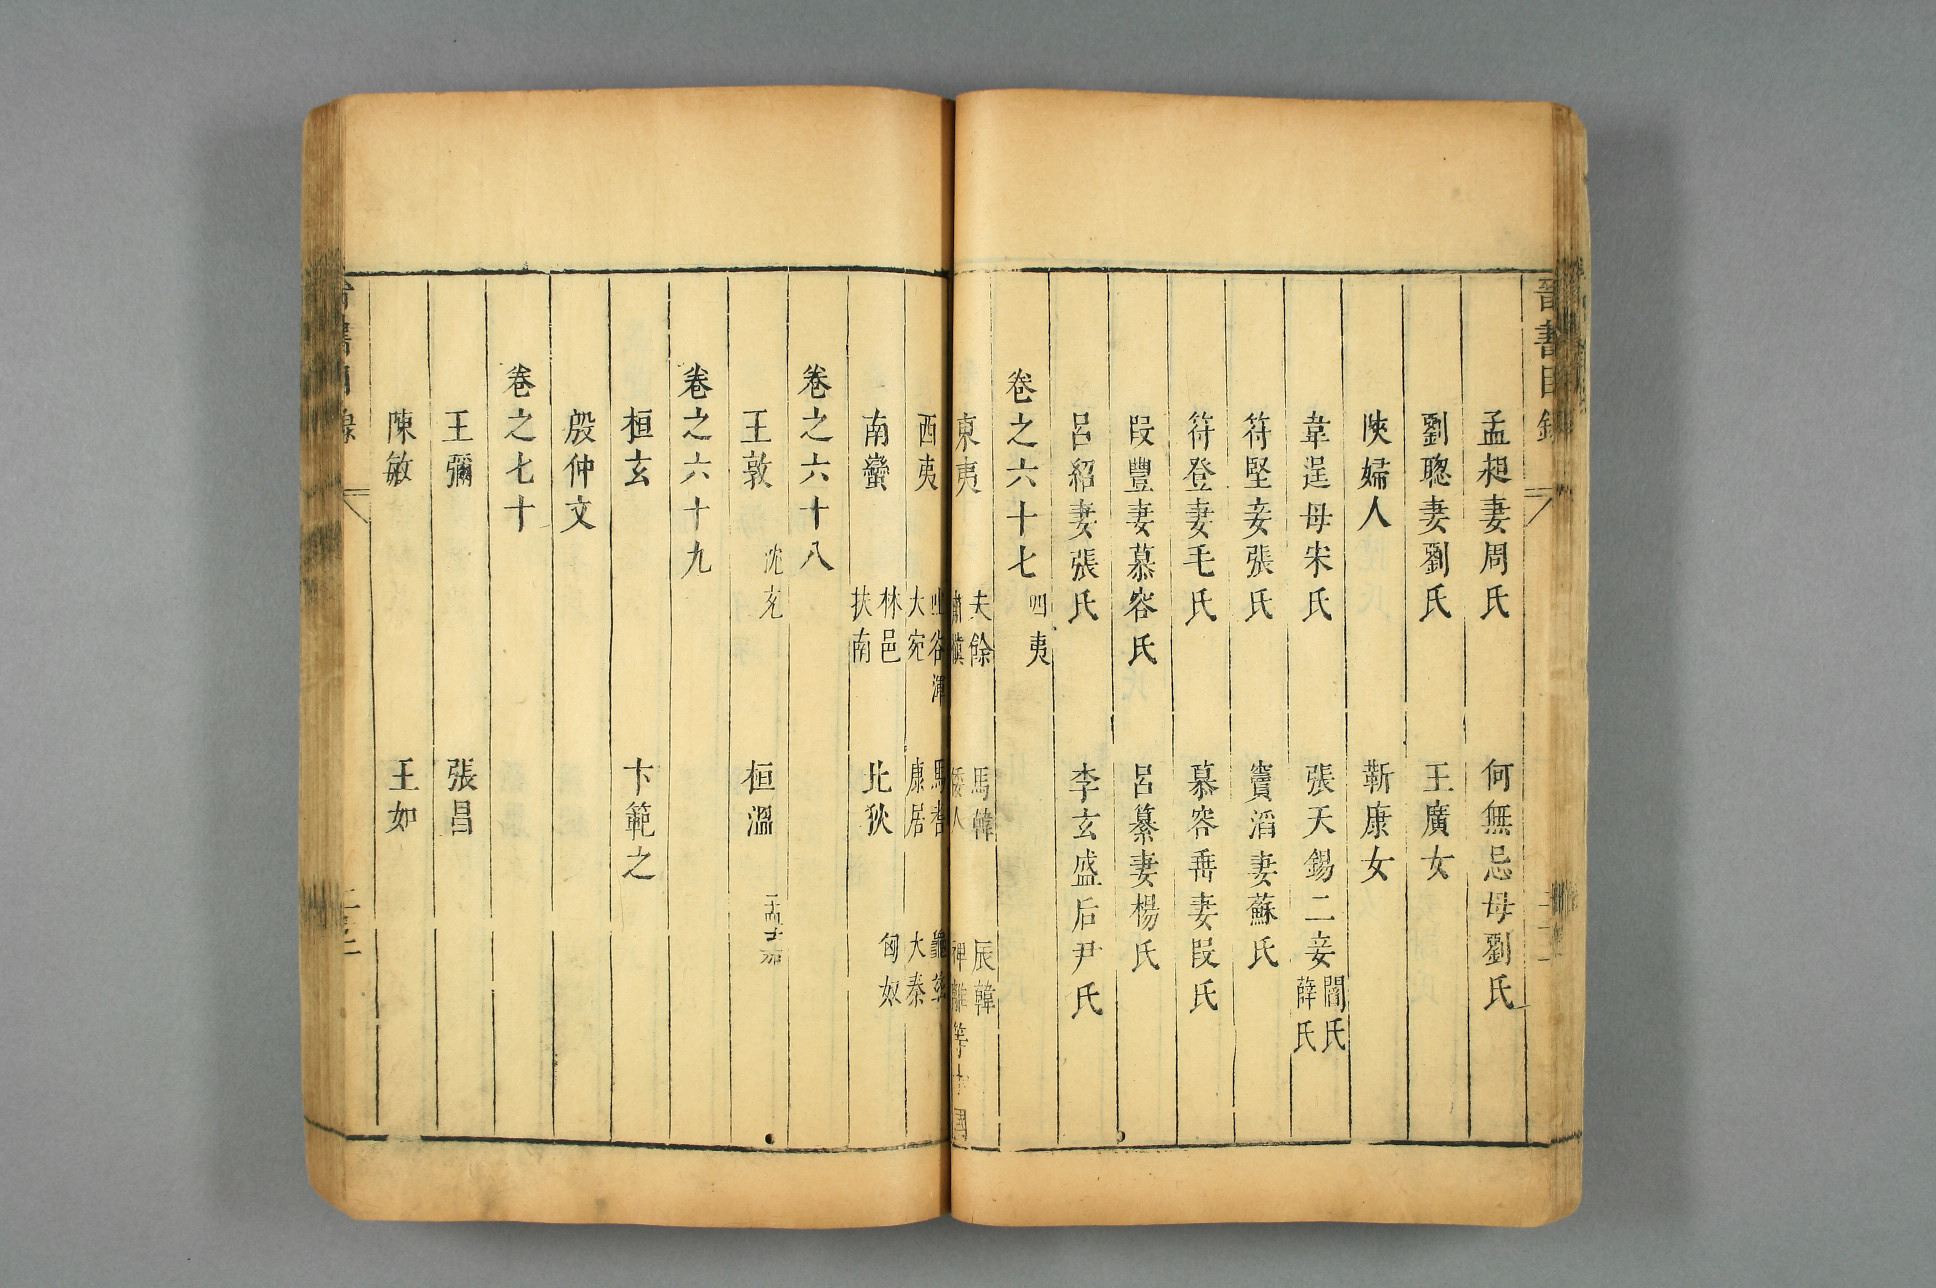 晉書目錄
孟昶妻周氏 何無忌母劉氏
劉聦妻劉氏 王廣女
陝婦人 靳康女
韋逞母宋氏 張天錫二妾 閻氏 薛氏
符堅妾張氏 竇滔妻蘇氏
符登妻毛氏 慕容垂妻段氏
段豐妻慕容氏 呂纂妻楊氏
呂紹妻張氏 李玄盛后尹氏
卷之六十七 四夷
東夷 夫餘 馬韓 辰韓
肅慎 倭人 裨離等十國
西夷 吐谷渾 焉耆 龜茲
大宛 康居 大秦
南蠻 林邑 扶南 北狄 匈奴
卷之六十八
王敦 沈充 桓溫
卷之六十九
桓玄 卞範之
殷仲文
卷之七十
王彌 張昌
陳敏 王如
晉書目錄